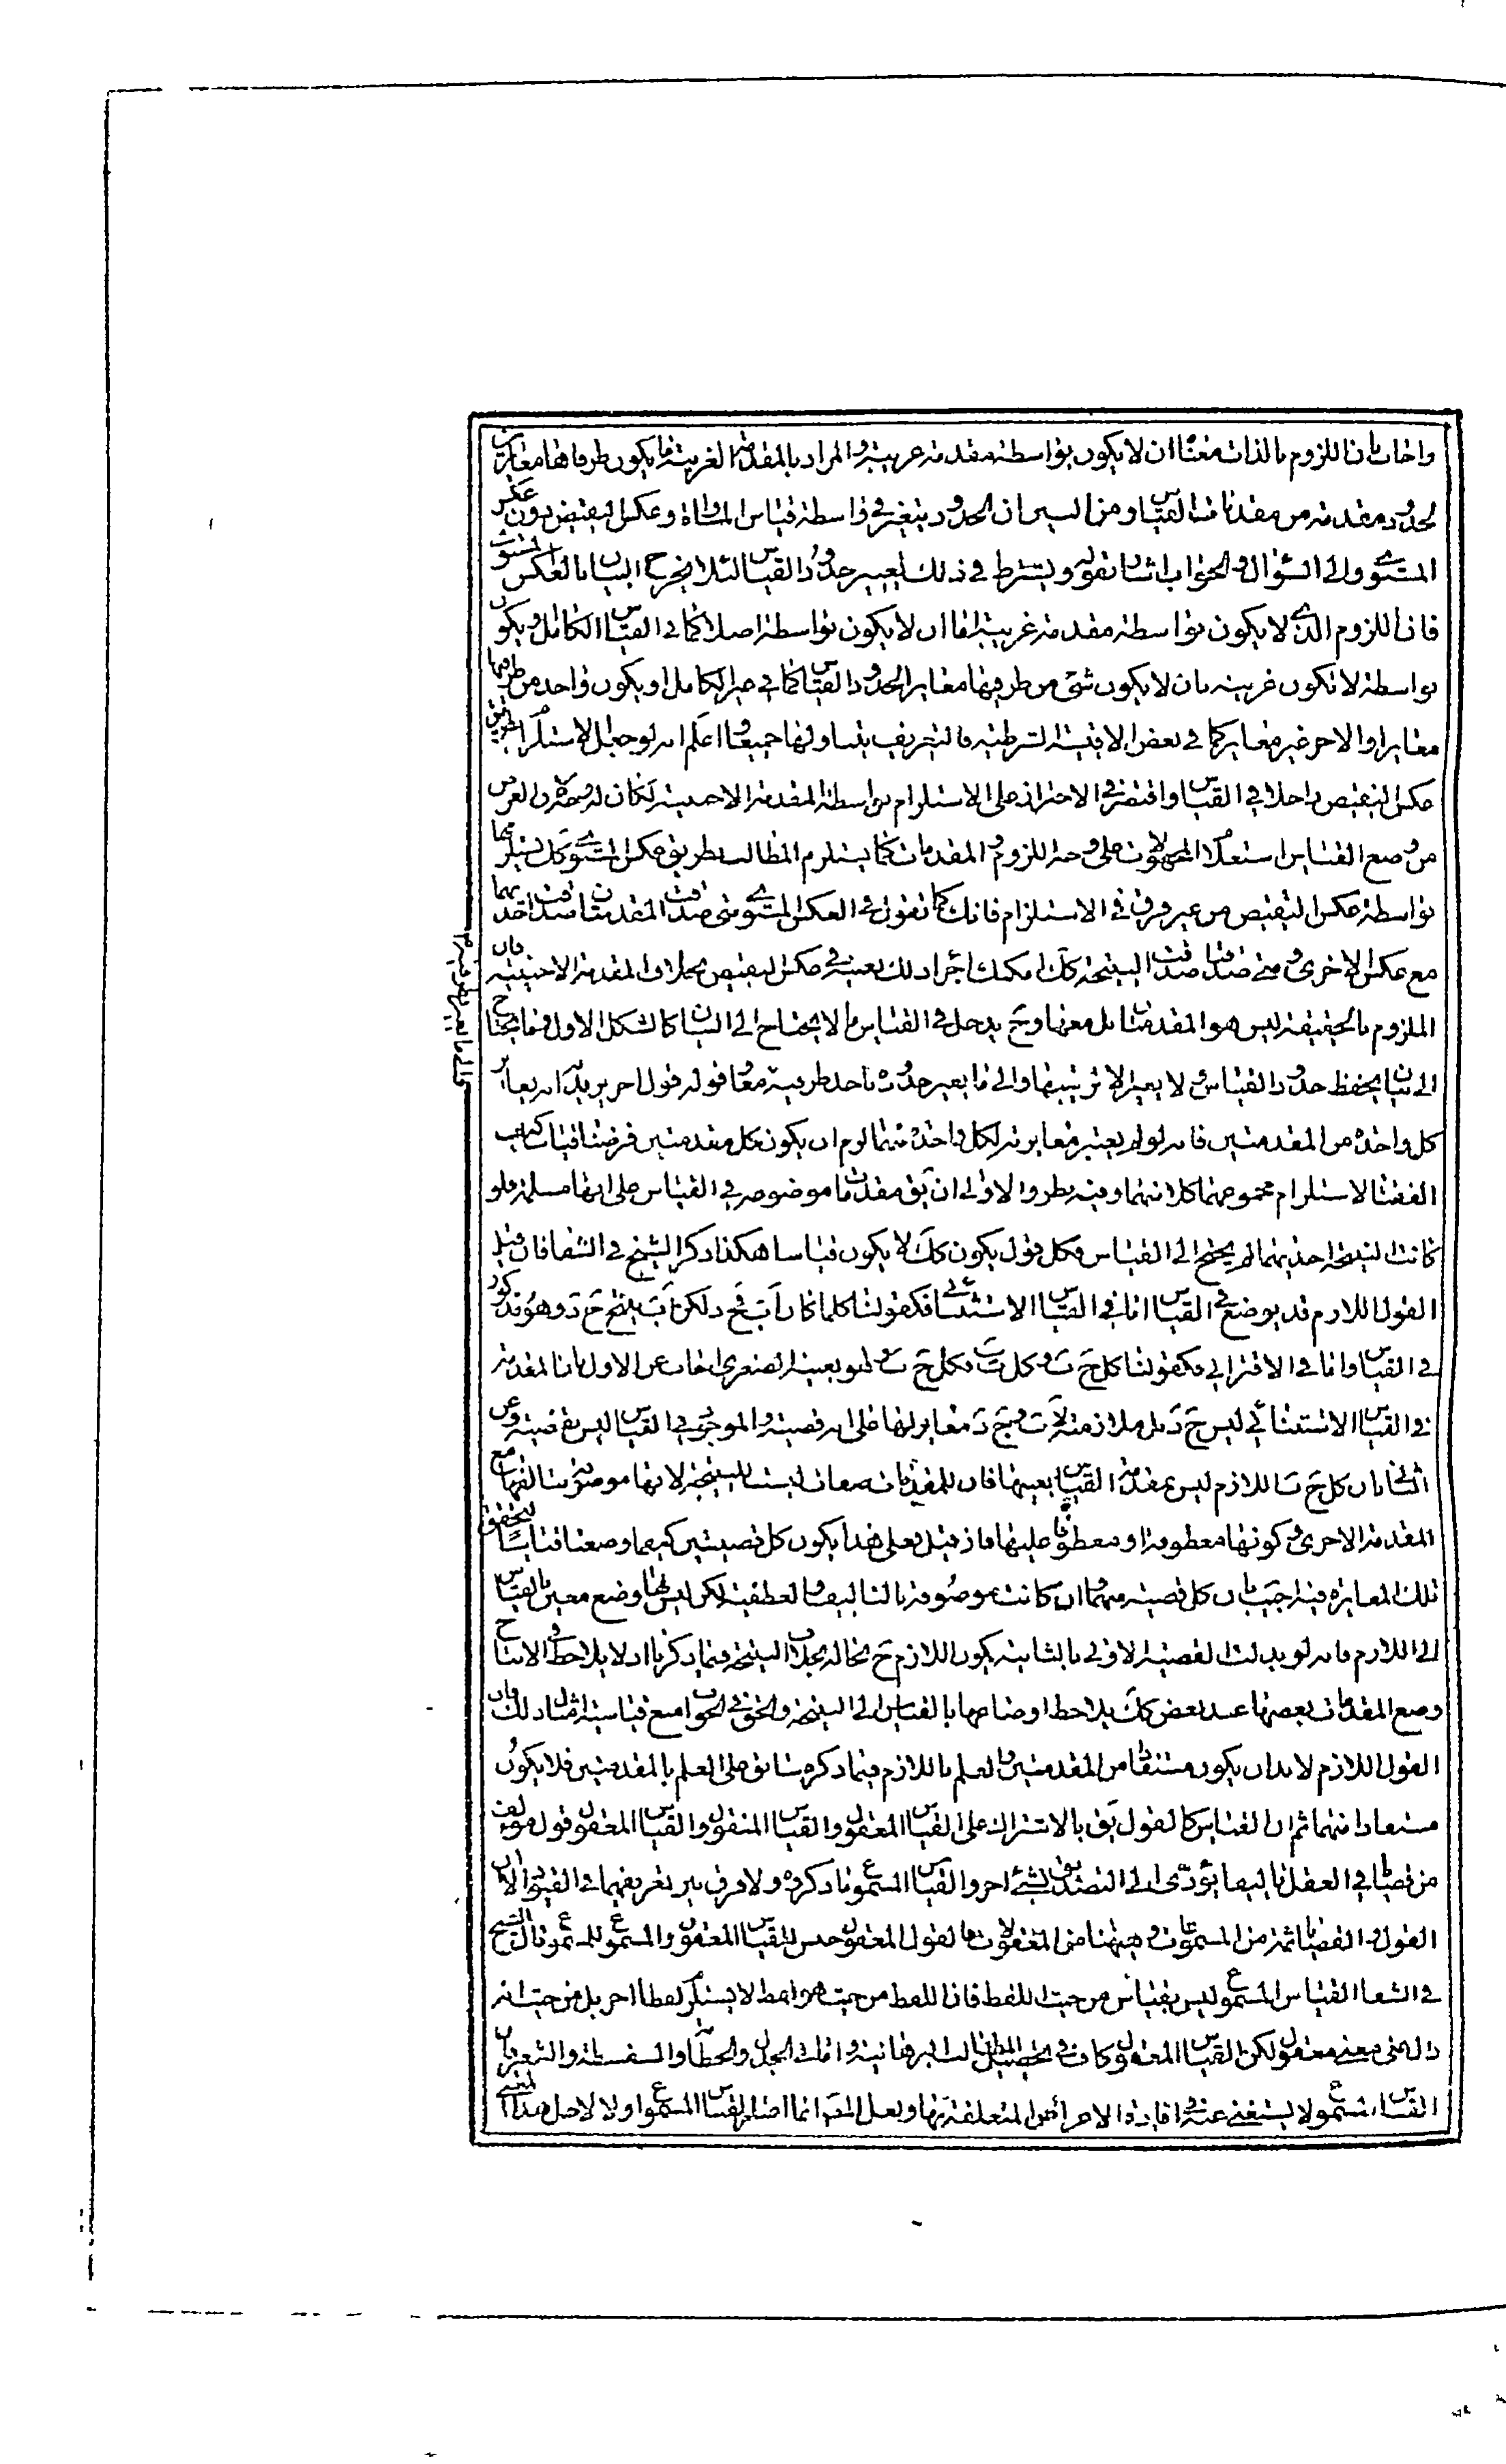 واجاب بان اللزوم بالذات معناه ان لا يكون بواسطة مقدمة غريبة والمراد بالمقدمة الغريبة ما يكون طرفاها مغايرين
لحدود مقدمة من مقدمات القياس ومن البين ان الحدود يتغير في واسطة قياس المساواة وعكس النقيض دون عكس
المستوى والى السؤال والجواب اشار بقوله ويشترط في ذلك تغيير حدود القياس لئلا يخرج البيان بالعكس المستوى
فان اللزوم الذى لا يكون بواسطة مقدمة غريبة اما ان لا يكون بواسطة اصلا كما في القياس الكامل او يكون
بواسطة لا تكون غريبة بان لا يكون شئ من طرفيها مغاير الحدود القياس كما في غير الكامل او يكون واحد من طرفيها
مغايرا والاخر غير مغاير كما في بعض الاقيسة الشرطية فالتعريف يتناولها جميعا واعلم انه لو جعل الاستلزام بطريق
عكس النقيض داخلا في القياس واقتصر في الاحتراز على الاستلزام بواسطة المقدمة الاجنبية لكان له وجه فان الغرض
من وضع القياس استعلام المجهولات على وجه اللزوم والمقدمات كما يستلزم المطالب بطريق عكس المستوى كك يستلزمها
بواسطة عكس النقيض من غير فرق في الاستلزام فانك كما تقول في العكس المستوى متى صدقت المقدمتان صدقت احديهما
مع عكس الاخرى ومتى صدقتا صدقت النتيجة كك امكنك اجراء ذلك بعينه في عكس النقيض بخلاف المقدمة الاجنبية فان
الملزوم بالحقيقة ليس هو المقدمتان بل معها وح يدخل في القياس ما لا يحتاج الى البيان كالشكل الاول وما يحتاج
الى بيان يحفظ حدود القياس ولا يغير الا ترتيبها والى ما يغير حدوده باحد طرفيه معا قوله قول اخر يريد به انه يغاير
كل واحدة من المقدمتين فانه لو لم يعتبر مغايرته لكل واحدة منهما لزم ان يكون كل مقدمتين فرضتا قياسا كيف
اتفقتا لاستلزام مجموعهما كلا منهما وفيه نظر والاولى ان يق مقدمات ما موضوعة في القياس على انها مسلمة فلو
كانت النتيجة احديهما لم يحتج الى القياس وكل قول يكون كك لا يكون قياسا هكذا ذكر الشيخ في الشفا فان قيل
القول اللازم قد يوضع في القياس اما في القياس الاستثنائى فكقولنا كلما كان اب فج د لكن اب ينتج ج د وهو مذكور
في القياس واما في الاقترانى فكقولنا كل ج ب وكل ب ب فكل ج ب وهو بعينه الصغرى اجاب عن الاول بان المقدمة
في القياس الاستثنائى ليس ج د بل ملازمته لاب وج د مغاير لها على انه قضية والموجود في القياس ليس بقضية وعن
الثانى بان كل ج ب اللازم ليس مقدمة القياس بعينها فان للمقدمات صفات ليست للنتيجة لانها موصوفة بتالفها مع
المقدمة الاخرى وكونها معطوفة او معطوفا عليها فان قيل فعلى هذا يكون كل قضيتين كيفما وضعنا قياسا لتحقق
تلك المغايرة فيه اجيب بان كل قضية منهما وان كانت موصوفة بالتاليف والعطفية لكن ليس لها وضع معين بالقياس
الى اللازم فانه لو بدلت القضية الاولى بالثانية يكون اللازم ح بحاله بخلاف النتيجة فيما ذكرنا اذ لا يلاحظ في الانتاج
وضع المقدمات بعضها عند بعض كك يلاحظ اوضاعها بالقياس الى النتيجة والحق في الجواب منع قياسية امثال ذلك فان
القول اللازم لا بد ان يكون مستفادا من المقدمتين والعلم باللازم فيما ذكره سابق على العلم بالمقدمتين فلا يكون
مستفادا منهما ثم ان القياس كالقول يق بالاشتراك على القياس المعقول والقياس المقول والقياس المعقول قول مؤلف
من قضايا في العقل تاليفا يؤدى الى التصديق بشئ اخر والقياس المسموع ما ذكروه ولا فرق بين تعريفهما في القيود الا ان
القول والقضايا ثمة من المسموعات وهيهنا من المعقولات فالقول المعقول جنس للقياس المعقول والمسموع للمسموع قال الشيخ
في الشفا القياس المسموع ليس بقياس من حيث اللفظ فان اللفظ من حيث هو لفظ لا يستلزم لفظا اخر بل من حيث انه
دال على معنى معقول لكن القياس المعقول كاف في تحصيل المطالب البرهانية واما في الجدل والخطابة والسفسطة والشعر فان
القياس المسموع لا يستغنى عنه في افادة الاغراض المتعلقة بها ولعل المص انما اختار القياس المسموع اولا لاجل هذا المعنى
والى ما يغير طرفيه م